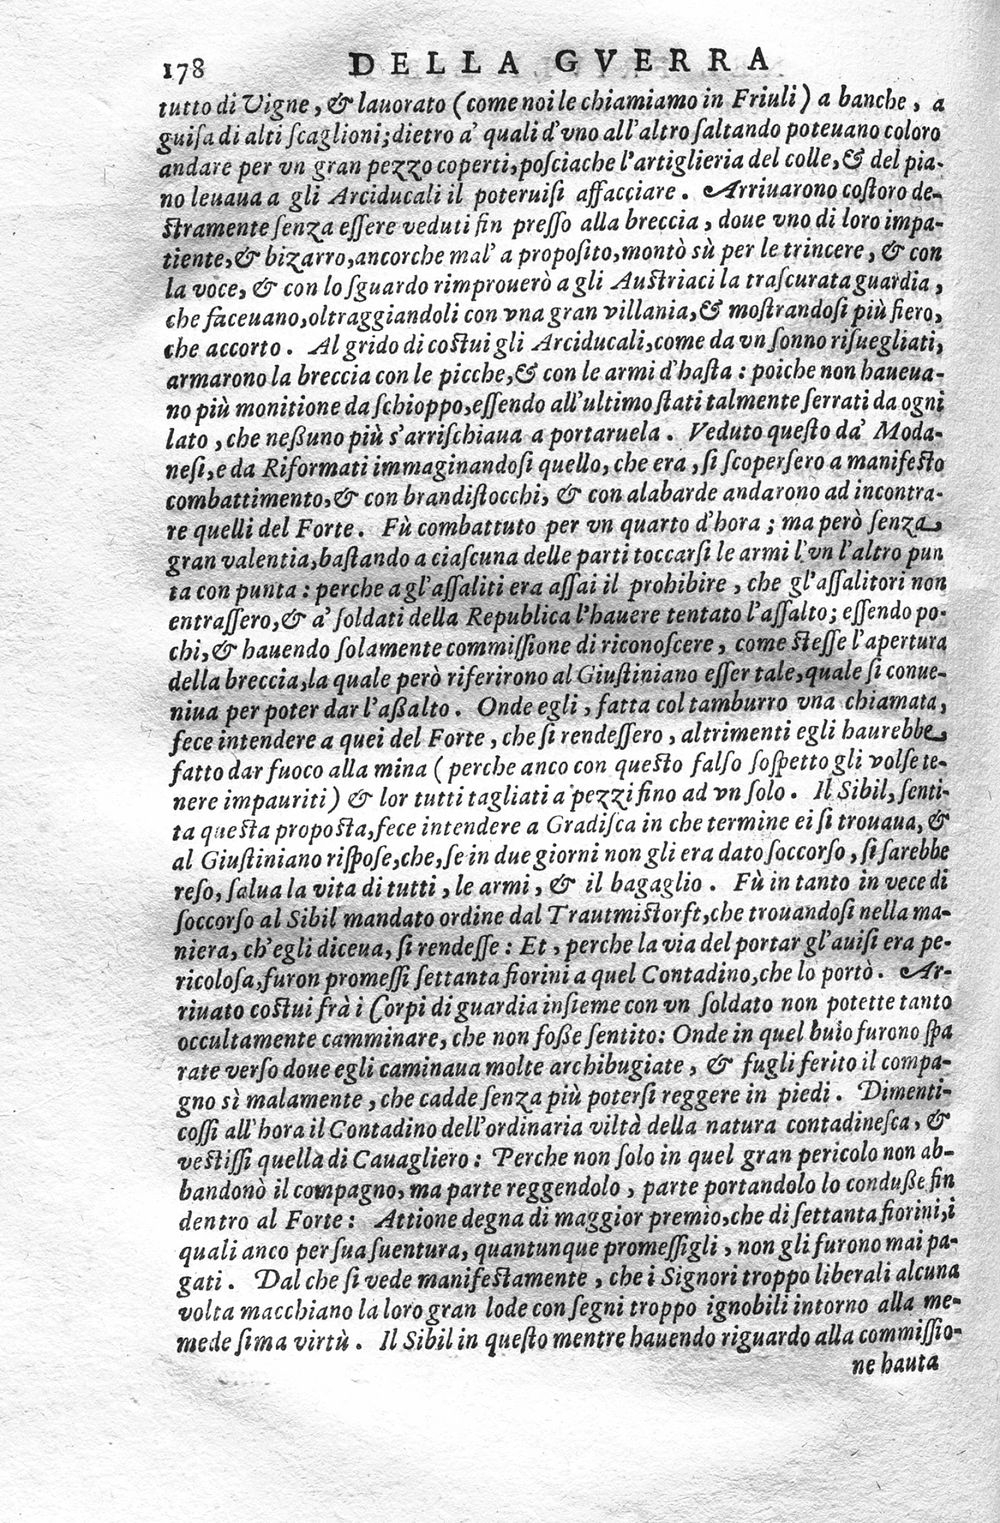 178 DELLA GVERRA
tutto di Vigne, & lauorato (come noi le chiamiamo in Friuli) a banche, a
guiſa di alti ſcaglioni; dietro a' quali d'vno all'altro ſaltando poteuano coloro
andare per vn gran pezzo coperti, poſciache l'artiglieria del colle, & del pia-
no leuaua a gli Arciducali il poteruiſi affacciare. Arriuarono coſtoro de-
ſtramente ſenza eſſere veduti fin preſſo alla breccia, doue vno di loro impa-
tiente, & bizarro, ancorche mal' a propoſito, montò sù per le trincere, & con
la voce, & con lo ſguardo rimprouerò a gli Auſtriaci la traſcurata guardia,
che faceuano, oltraggiandoli con vna gran villania, & moſtrandoſi più fiero,
che accorto. Al grido di coſtui gli Arciducali, come da vn ſonno riſuegliati,
armarono la breccia con le picche, & con le armi d'haſta: poiche non haueua-
no più monitione da ſchioppo, eſſendo all'ultimo ſtati talmente ſerrati da ogni
lato, che neßuno più s'arriſchiaua a portaruela. Veduto queſto da' Moda-
neſi, e da Riformati immaginandoſi quello, che era, ſi ſcoperſero a manifeſto
combattimento, & con brandiſtocchi, & con alabarde andarono ad incontra-
re quelli del Forte. Fù combattuto per vn quarto d'hora; ma però ſenza
gran valentia, baſtando a ciaſcuna delle parti toccarſi le armi l'vn l'altro pun
ta con punta: perche a gl'aſſaliti era aſſai il prohibire, che gl'aſſalitori non
entraſſero, & a' ſoldati della Republica l'hauere tentato l'aſſalto; eſſendo po-
chi, & hauendo ſolamente commiſſione di riconoſcere, come ſteſſe l'apertura
della breccia, la quale però riferirono al Giuſtiniano eſſer tale, quale ſi conue-
niua per poter dar l'aßalto. Onde egli, fatta col tamburro vna chiamata,
fece intendere a quei del Forte, che ſi rendeſſero, altrimenti egli haurebbe
fatto dar fuoco alla mina (perche anco con queſto falſo ſoſpetto gli volſe te-
nere impauriti) & lor tutti tagliati a pezzi fino ad vn ſolo. Il Sibil, ſenti-
ta queſta propoſta, fece intendere a Gradiſca in che termine ei ſi trouaua, &
al Giuſtiniano riſpoſe, che, ſe in due giorni non gli era dato ſoccorſo, ſi ſarebbe
reſo, ſalua la vita di tutti, le armi, & il bagaglio. Fù in tanto in vece di
ſoccorſo al Sibil mandato ordine dal Trautmiſtorft, che trouandoſi nella ma-
niera, ch'egli diceua, ſi rendeſſe: Et, perche la via del portar gl'auiſi era pe-
ricoloſa, furon promeſſi ſettanta fiorini a quel Contadino, che lo portò. Ar-
riuato coſtui frà i Corpi di guardia inſieme con vn ſoldato non potette tanto
occultamente camminare, che non foße ſentito: Onde in quel buio furono ſpa
rate verſo doue egli caminaua molte archibugiate, & fugli ferito il compa-
gno sì malamente, che cadde ſenza più poterſi reggere in piedi. Dimenti-
coſſi all'hora il Contadino dell'ordinaria viltà della natura contadineſca, &
veſtiſſi quella di Cauagliero: Perche non ſolo in quel gran pericolo non ab-
bandonò il compagno, ma parte reggendolo, parte portandolo lo conduße fin
dentro al Forte: Attione degna di maggior premio, che di ſettanta fiorini, i
quali anco per ſua ſuentura, quantunque promeſſigli, non gli furono mai pa-
gati. Dal che ſi vede manifeſtamente, che i Signori troppo liberali alcuna
volta macchiano la loro gran lode con ſegni troppo ignobili intorno alla me-
mede ſima virtù. Il Sibil in queſto mentre hauendo riguardo alla commiſſio-
ne hauta